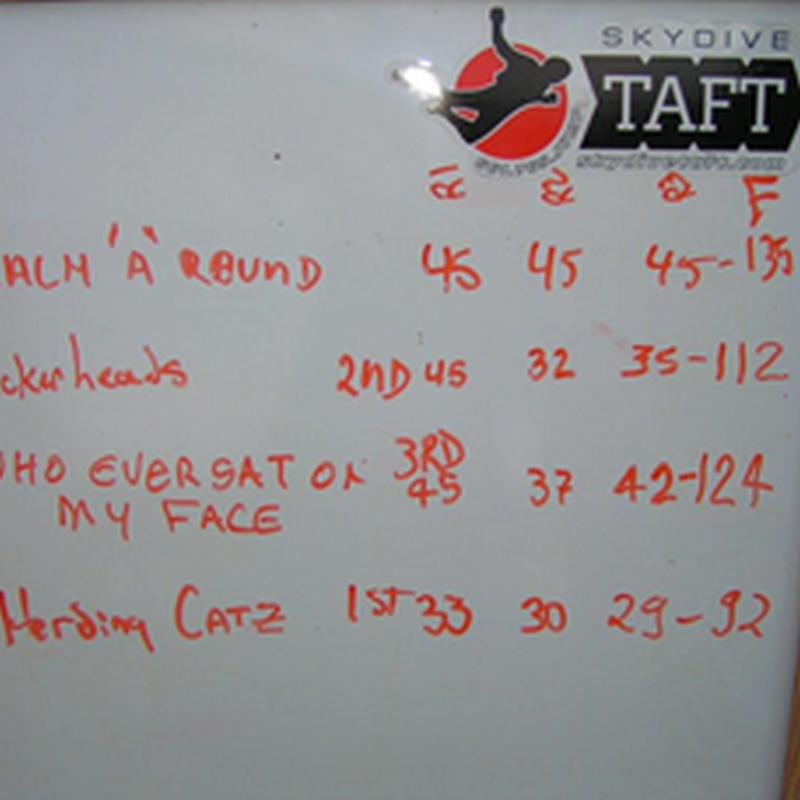 SKYDIVE
TAFT
skydivetaft.com
R1 R2 R3 F
ALM 'A' ROUND 45 45 45-135
ckerheads 2ND 45 32 35-112
WHO EVER SAT ON 3RD
45 37 42-124
MY FACE
Herding CATZ 1ST 33 30 29-92